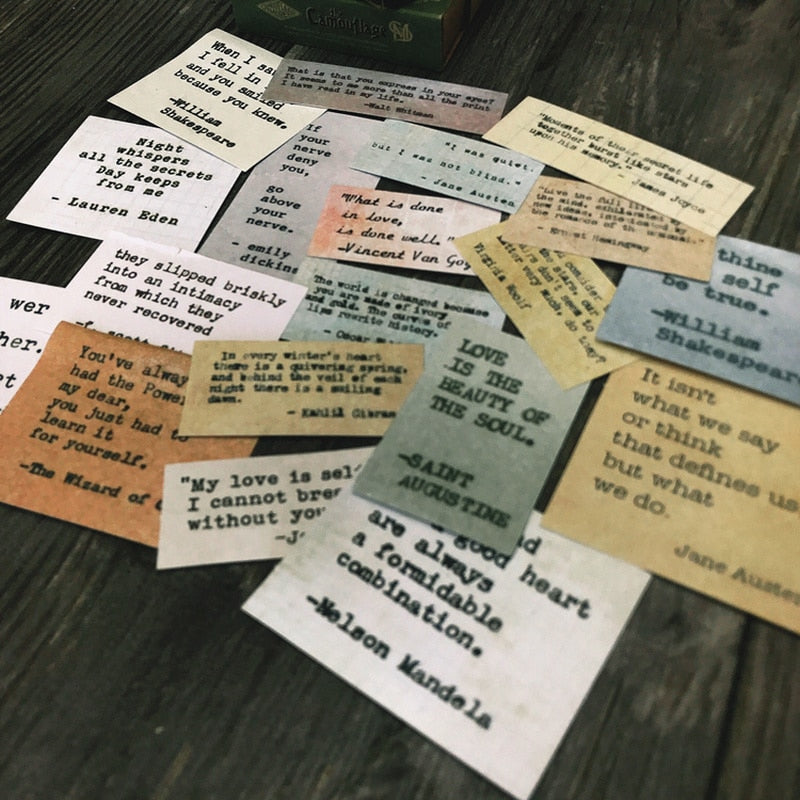 the
Camouflage
When I sa
I fell in
and you smiled
because you knew.
-William
Shakespeare
What is that you express in your eyes?
It seems to me more than all the print
I have read in my life.
-Walt Whitman
"Moments of their secret life
together burst like stars
upon his memory."
- James Joyce
Night
whispers
all the secrets
Day keeps
from me
- Lauren Eden
If
your
nerve
deny
you,
go
above
your
nerve.
- emily
dickins
"I was quiet,
but I was not blind."
- Jane Austen
"What is done
in love,
is done well."
-Vincent Van Gog
"Live the full life of
the mind, exhilarated by
new ideas, intoxicated by
the romance of the unusual."
- Ernest Hemingway
consider
stars our
don't seem to
matter very much, do they?
Virginia Woolf
thine
self
be true.
-William
Shakespeare
they slipped briskly
into an intimacy
from which they
never recovered
The world is changed because
you are made of ivory
and gold. The curves of
lips rewrite history.
- Oscar
wer
her.
et
You've alway
had the Power
my dear,
you just had to
learn it
for yourself.
-The Wizard of
In every winter's heart
there is a quivering spring,
and behind the veil of each
night there is a smiling
dawn.
- Kahlil Gibran
LOVE
IS THE
BEAUTY OF
THE SOUL.
-SAINT
AUGUSTINE
It isn't
what we say
or think
that defines us
but what
we do.
Jane Austen
"My love is sel
I cannot brea
without you
-J
a good heart
are always
a formidable
combination.
-Nelson Mandela